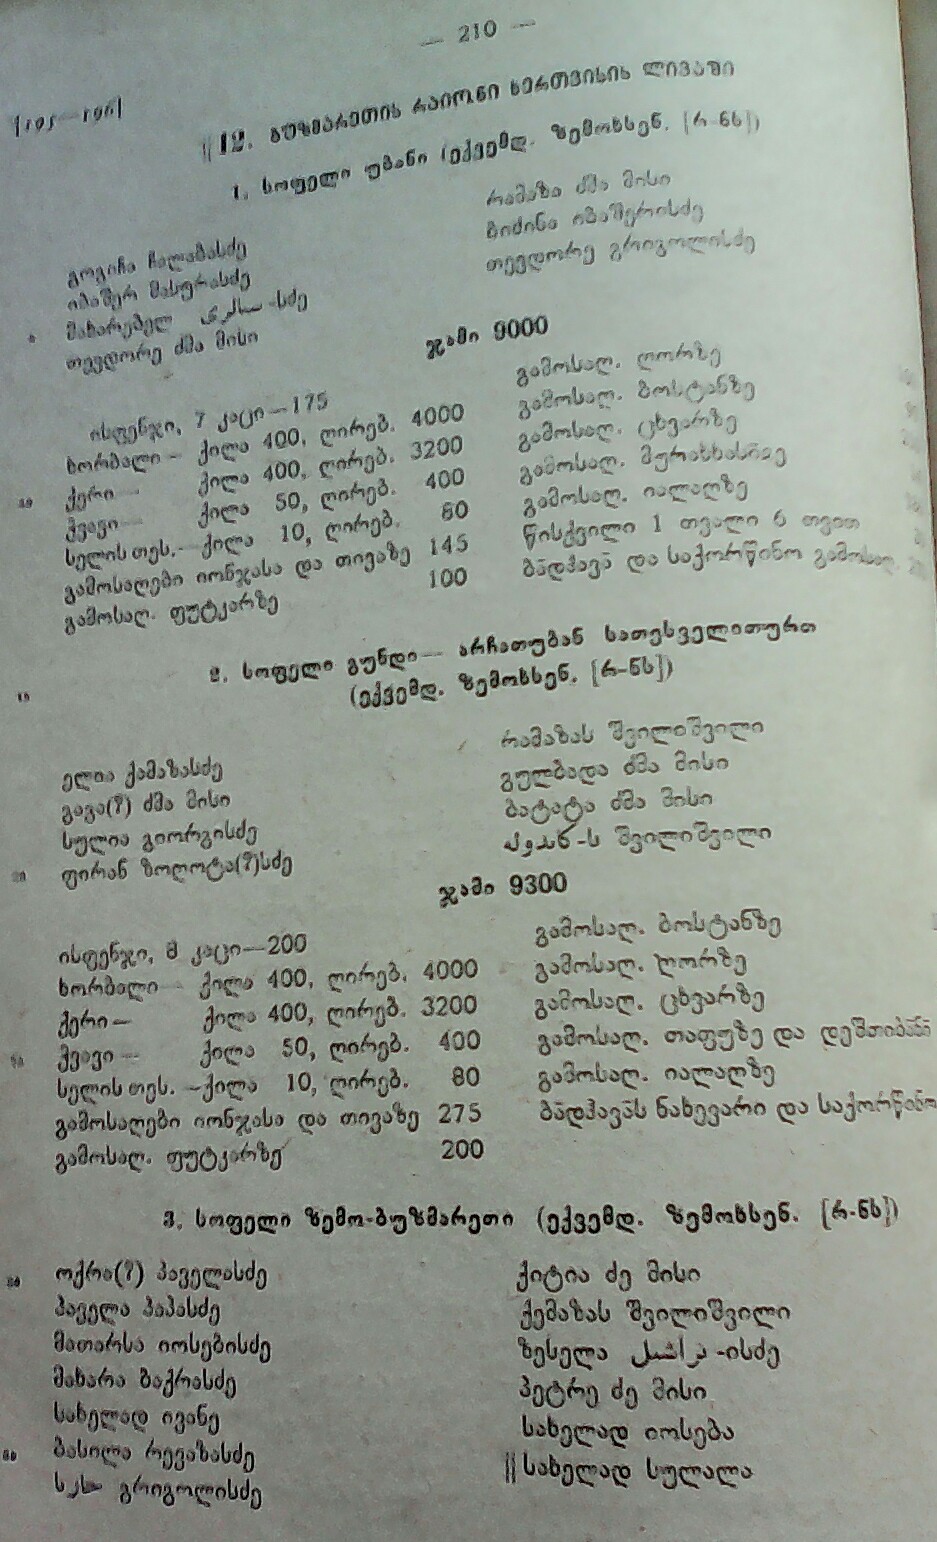 — 210 —
[195—196]
||12. ბუზმარეთის რაიონი ხერთვისის ლივაში
1. სოფელი უბანი (ექვემდ. ზემოხსენ. [რ-ნს])
გოგიჩა ჩალაბასძე
იბაშერ მასურასძე
მახარებელ -სძე
თევდორე ძმა მისი
რამაზა ძმა მისი
ბიძინა იბაშერისძე
თევდორე გრიგოლისძე
ჯამი 9000
ისფენჯი, 7 კაცი—175
ხორბალი — ქილა 400, ღირებ. 4000
ქერი — ქილა 400, ღირებ. 3200
ჭვავი — ქილა 50, ღირებ. 400
სელის თეს.— ქილა 10, ღირებ. 80
გამოსაღები იონჯასა და თივაზე 145
გამოსაღ. ფუტკარზე 100
გამოსაღ. ღორზე
გამოსაღ. ბოსტანზე
გამოსაღ. ცხვარზე
გამოსაღ.
გამოსაღ. იალაღზე
წისქვილი 1 თვალი 6 თვით
ბადჰავა და საქორწინო გამოსაღ.
2. სოფელი გუნდი— არჩათუბან სათესველითურთ
(ექვემდ. ზემოხსენ. [რ-ნს])
ელია ქამაზასძე
გავა(?) ძმა მისი
სულია გიორგისძე
ფირან ზოღოტა(?)სძე
რამაზას შვილიშვილი
გულბადა ძმა მისი
ბატატა ძმა მისი
-ს შვილიშვილი
ჯამი 9300
ისფენჯი, 8 კაცი—200
ხორბალი — ქილა 400, ღირებ. 4000
ქერი — ქილა 400, ღირებ. 3200
ჭვავი — ქილა 50, ღირებ. 400
სელის თეს. — ქილა 10, ღირებ. 80
გამოსაღები იონჯასა და თივაზე 275
გამოსაღ. ფუტკარზე 200
გამოსაღ. ბოსტანზე
გამოსაღ. ღორზე
გამოსაღ. ცხვარზე
გამოსაღ. თაფუზე და დეშთიბანი
გამოსაღ. იალაღზე
ბადჰავას ნახევარი და საქორწინო
3. სოფელი ზემო-ბუზმარეთი (ექვემდ. ზემოხსენ. [რ-ნს])
ოქრა(?) პაველასძე
პაველა პაპასძე
მათარსა იოსებისძე
მახარა ბაქრასძე
სახელად ივანე
ბასილა რევაზასძე
გრიგოლისძე
ქიტია ძე მისი
ქემაზას შვილიშვილი
ზესელა -ისძე
პეტრე ძე მისი
სახელად იოსება
||სახელად სულალა